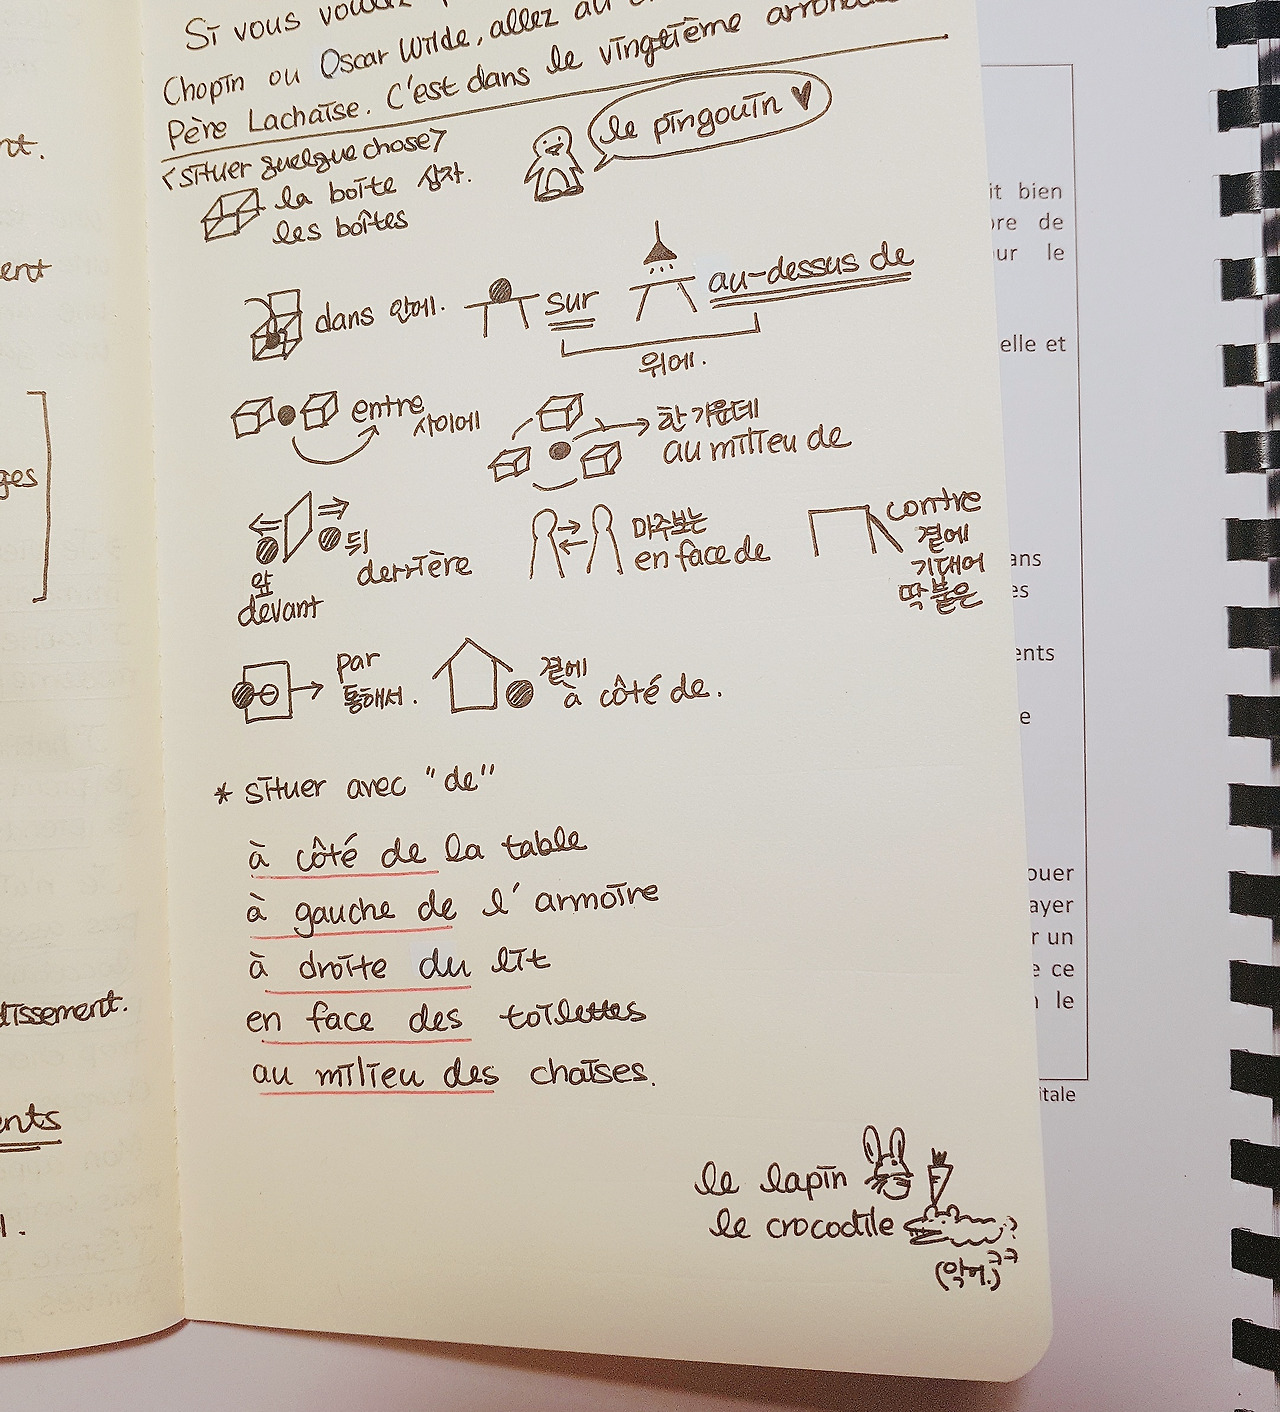 Si vous voulez
Chopin ou Oscar Wilde, allez au
Père Lachaise. C'est dans le vingtième
<situer quelque chose>
le pingouin ♥
la boîte 상자.
les boîtes
dans 안에.
sur
au-dessus de
위에.
entre
사이에
한가운데
au milieu de
앞
devant
뒤
derrière
마주보는
en face de
contre
곁에
기대어
딱 붙은
par
통해서.
곁에
à côté de.
* situer avec "de"
à côté de la table
à gauche de l'armoire
à droite du lit
en face des toilettes
au milieu des chaises.
le lapin
le crocodile ?
(악어.) ㅋㅋ
nt.
ent
ges
dissement.
ents
l.
it bien
re de
ur le
elle et
ans
es
ents
e
ouer
ayer
r un
e ce
le
itale